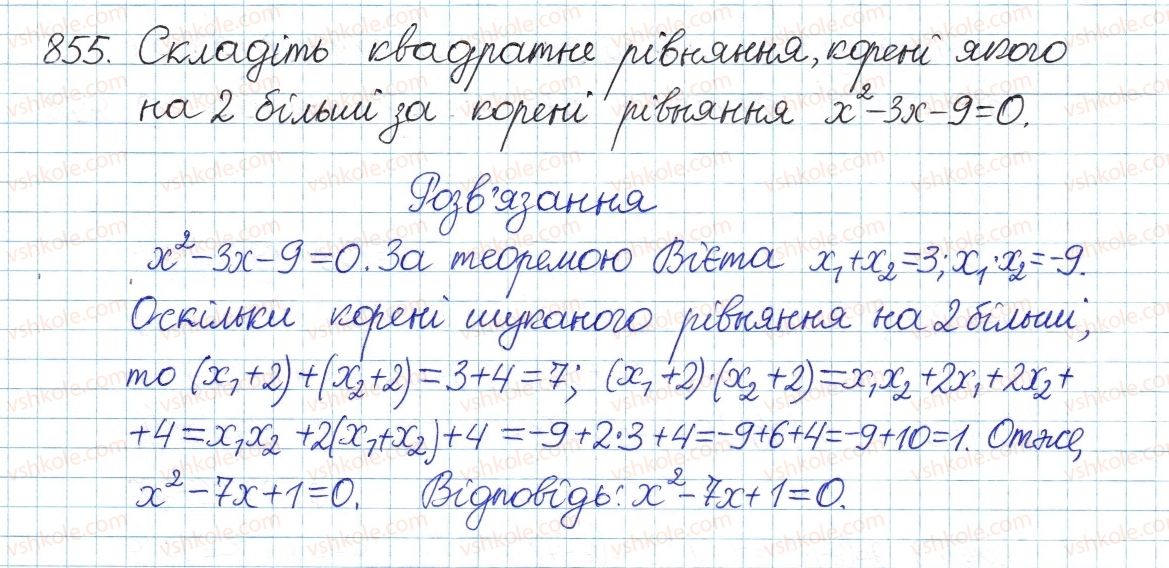 855. Складіть квадратне рівняння, корені якого
на 2 більші за корені рівняння x²-3x-9=0.
Розв'язання
x²-3x-9=0. За теоремою Вієта x₁+x₂=3; x₁·x₂=-9.
Оскільки корені шуканого рівняння на 2 більші,
то (x₁+2)+(x₂+2)=3+4=7; (x₁+2)·(x₂+2)=x₁x₂+2x₁+2x₂+
+4=x₁x₂+2(x₁+x₂)+4=-9+2·3+4=-9+6+4=-9+10=1. Отже,
x²-7x+1=0. Відповідь: x²-7x+1=0.